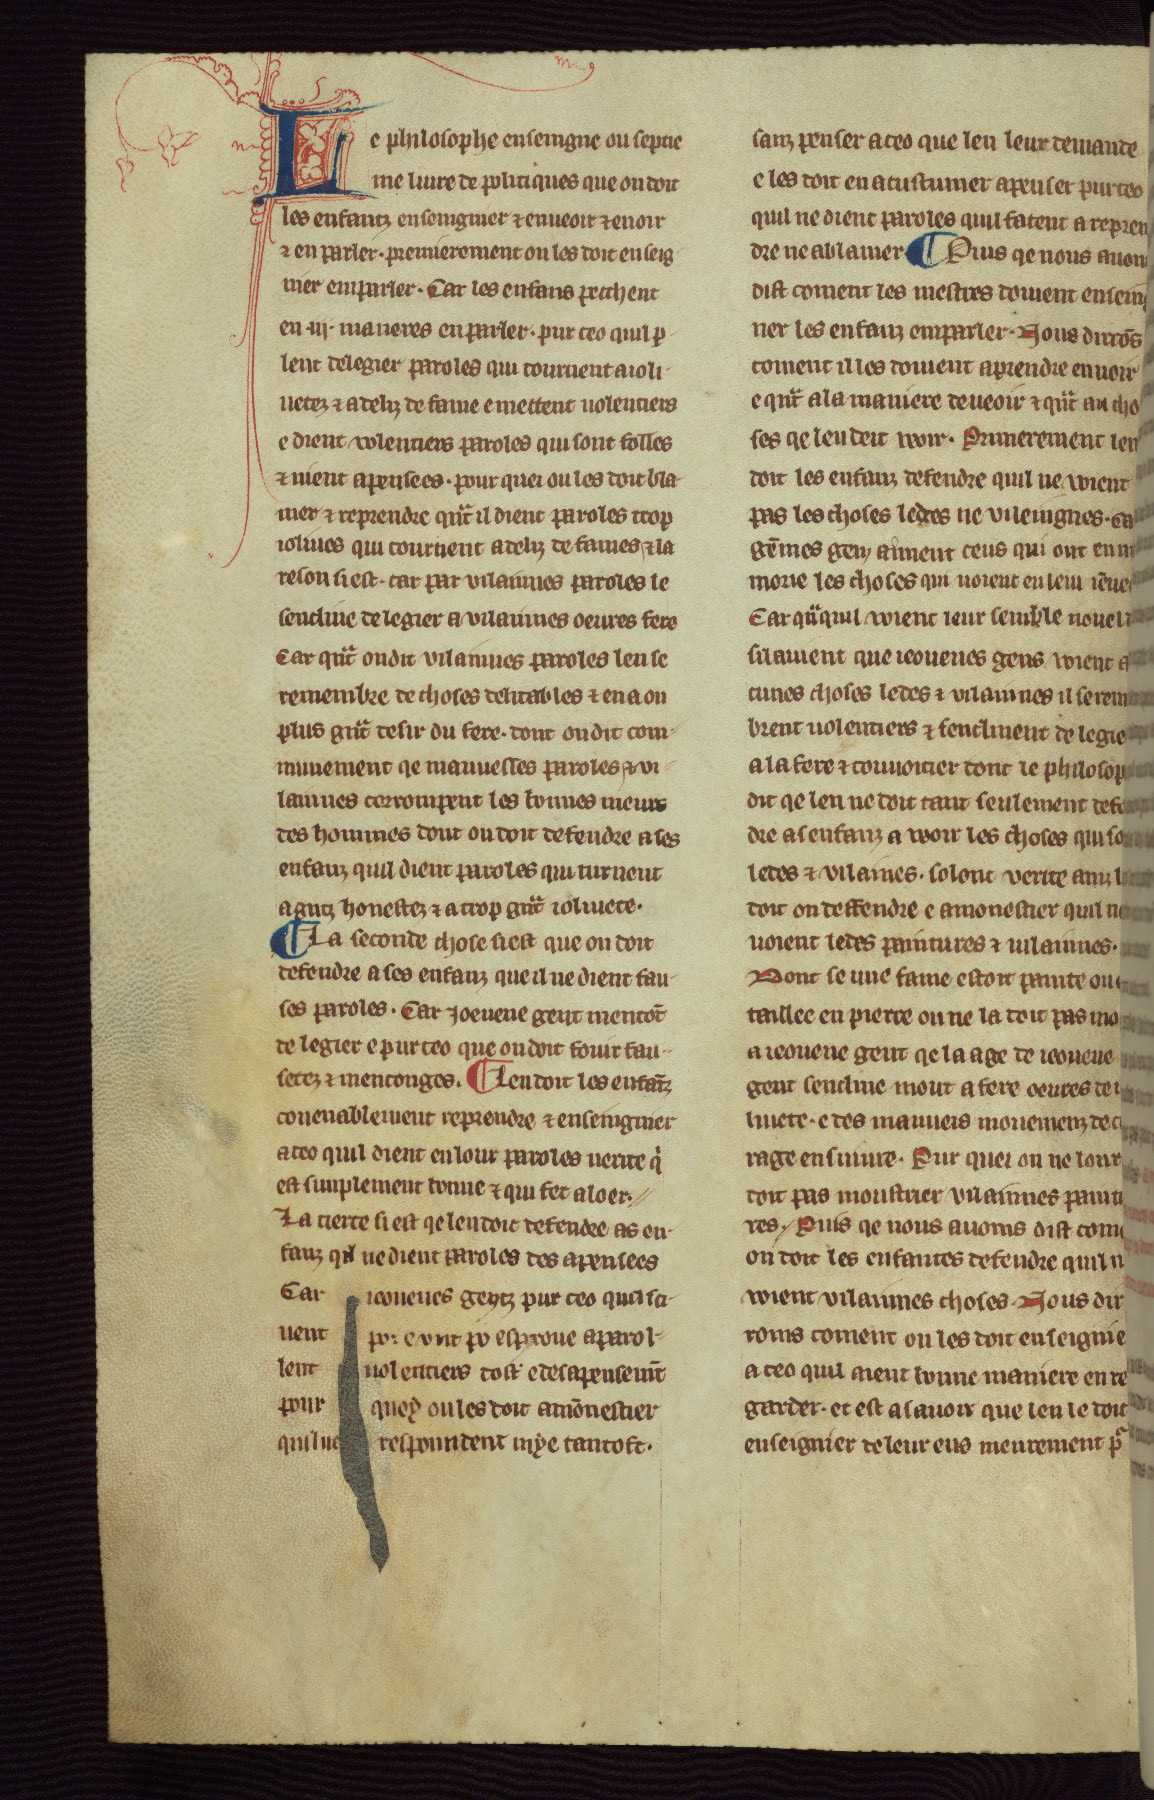 Le philosophe enseingne ou septie
me liure de politiques que on doit
les enfantz enseingnier ⁊ en ueoir ⁊ en oir
⁊ en parler. premierement on les doit enseig
nier emparler. Car les enfans pecchent
en .iii. maneres en parler. pur ceo quil p
lent de legier paroles qui tournent a ioli
uetez ⁊ a deliz de fame e mettent uolentiers
e dient volentiers paroles qui sont folles
⁊ nient apensees. pour quei on les doit bla
mer ⁊ reprendre qnt il dient paroles trop
ioliues qui tournent a deliz de fames ⁊ la
reson si est. car par vilainnes paroles le
sencline de legier a vilainnes oeures fere
Car qnt on dit vilainnes paroles len se
remembre de choses delitables ⁊ en a on
plus gnt desir du fere. dont on dit com
munement qe mauuesses paroles ⁊ vi
lainnes corrompent les bonnes meurs
des hommes dont on doit defendre a ses
enfanz quil dient paroles qui turnent
a gntz honestez ⁊ a trop gnt ioliuete.
La seconde chose si est que on doit
defendre a ses enfanz que il ne dient fau
ses paroles. Car joeuene gent mentot
de legier e pur ceo que on doit fouir fau
setez ⁊ mentonges. Len doit les enfanz
conenablement reprendre ⁊ enseingnier
a ceo quil dient en lour paroles uerite q
est simplement bonne ⁊ qui fet a loer.
La tierce si est qe len doit defendre as en
fanz qil ne dient paroles des apensees
Car ieoueues gentz pur ceo quei sa
uent po: e ont po esproue a parol
lent uolentiers tost e desapensemt
pour quey on les doit amonestier
quil ne respoundent mye tantost.
sanz penser a ceo que len leur demande
e les doit en acustumer a penser pur ceo
quil ne dient paroles quil facent a repren
dre ne a blamer Puis qe nous auon
dist coment les mestres doiuent ensein
ner les enfanz emparler. Nous dirons
coment il les doiuent aprendre en uoir
e qnt a la maniere de ueoir ⁊ qnt au cho
ses qe len deit uoir. Primerement len
doit les enfanz defendre quil ne voient
pas les choses ledes ne vileingnes. ca
gennes genz aiment ceus qui ont en m
morie les choses qui uoient en leur ieue
Car qnquil voient ieur semble nouel
si lauient que ieoueues gens voient a
cunes choses ledes ⁊ vilainnes il se rem
brent uolentiers ⁊ senclinent de legie
a la fere ⁊ couuoitier dont le philosop
dit qe len ne doit tant seulement defe
dre a s enfanz a uoir les choses qui so
ledes ⁊ vilaines. solont verite ainz l
doit on deffendre e amonestier quil ne
uoient ledes paintures ⁊ uilainnes.
Dont se une fame estoit painte ou
taillee en pierre on ne la doit pas mo
a ieoueue gent qe la age de ieoueue
gent sencline mout a fere oeures de i
liuete. e des mauueis mouemenz de c
rage ensuiure. Pur quei on ne lour
doit pas moustrier vilainnes paintu
res. Puis qe nous auoms dist come
on doit les enfantes defendre quil n
voient vilainnes choses. Nous dir
roms coment on les doit enseignie
a ceo quil aient bonne maniere en re
garder. et est a sauoir que len le doit
enseignier de leur eus meurement p